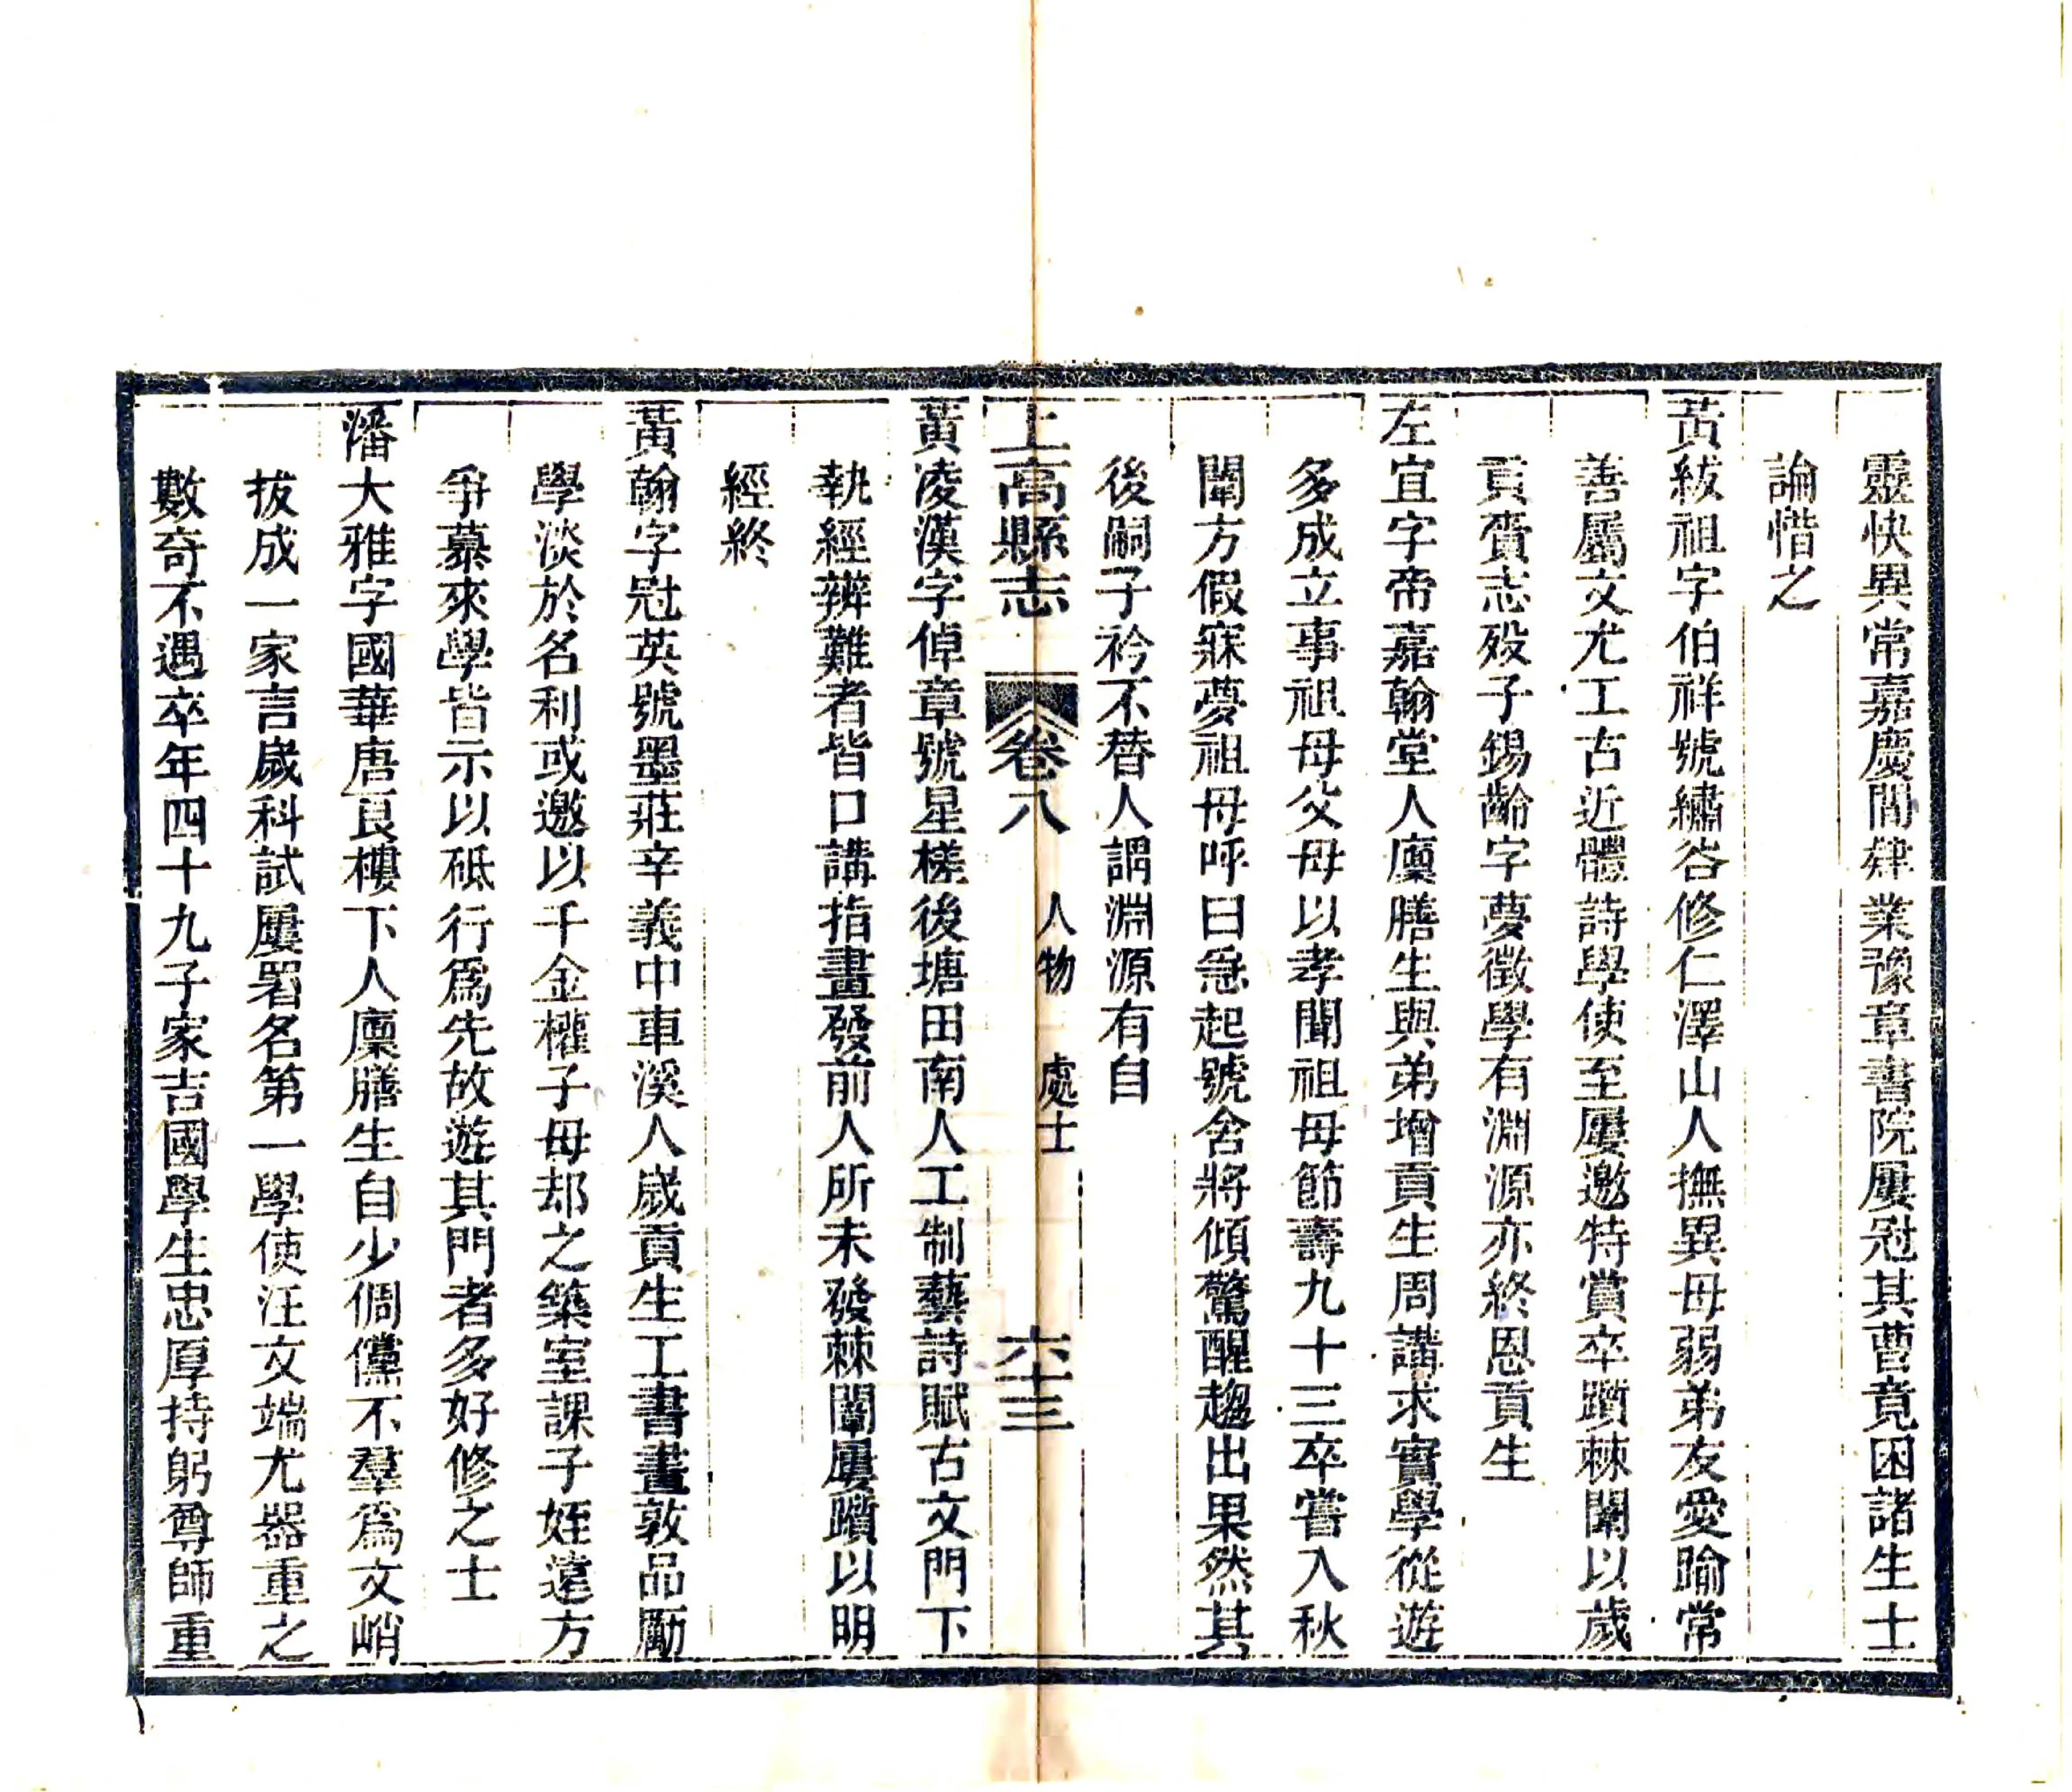 靈快異常嘉慶間肄業豫章書院屢冠其曹竟困諸生士
論惜之
黃紱祖字伯祥號繡谷修仁澤山人撫異母弱弟友愛踰常
善屬文尤工古近體詩學使至屢邀特賞卒躓棘闈以歲
貢賫志歿子錫齡字夢徵學有淵源亦終恩貢生
左宜字帝嘉翰堂人廩膳生與弟增貢生周講求實學從遊
多成立事祖母父母以孝聞祖母節壽九十三卒嘗入秋
闈方假寐夢祖母呼曰急起號舍將傾驚醒趨出果然其
後嗣子衿不替人謂淵源有自
上高縣志 卷八 人物 處士 六十三
黃凌漢字倬章號星槎後塘田南人工制藝詩賦古文門下
執經辨難者皆口講指畫發前人所未發棘闈屢躓以明
經終
黃翰字冠英號墨莊辛義中車溪人歲貢生工書畫敦品勵
學淡於名利或邀以千金權子母却之築室課子姪遠方
爭慕來學皆示以砥行爲先故遊其門者多好修之士
潘大雅字國華唐艮樓下人廩膳生自少倜儻不羣爲文峭
拔成一家言歲科試屢署名第一學使汪文端尤器重之
數奇不遇卒年四十九子家吉國學生忠厚持躬尊師重